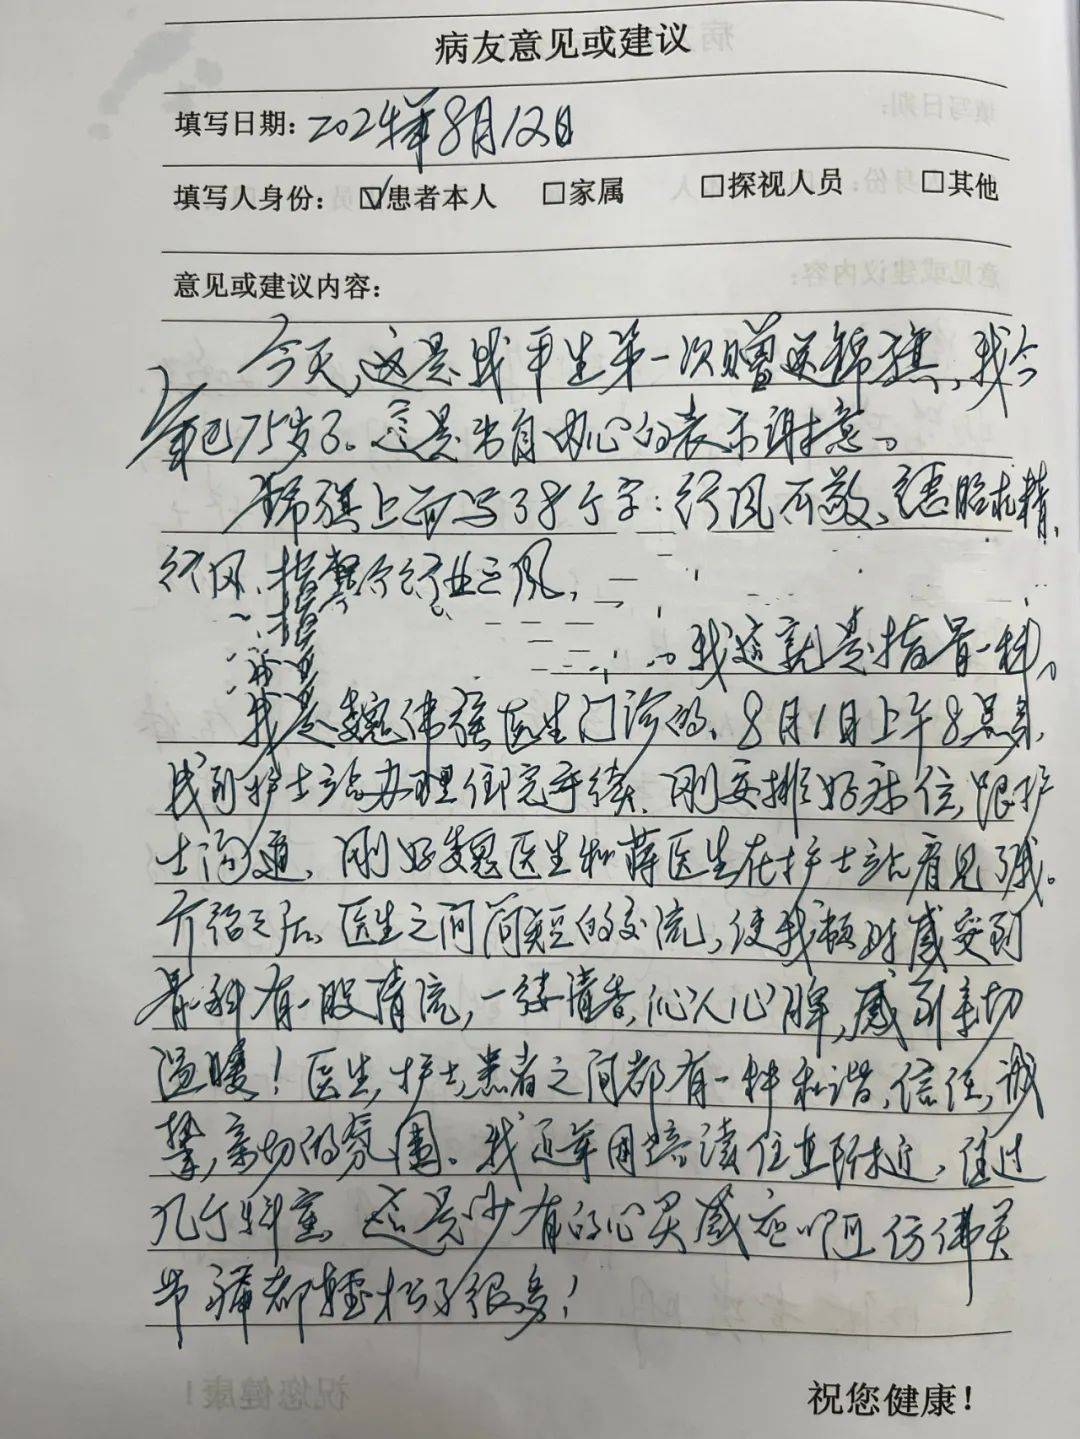 病友意见或建议
填写日期：2024年8月12日
填写人身份：☑患者本人 □家属 □探视人员 □其他
意见或建议内容：
今天，这是我平生第一次赠送锦旗，我今
年已75岁了。这是出自内心的表示谢意。
锦旗上面写了8个字：行风不敬、德昭术精，
行风、指整个行业之风，
。我这就是指骨一科。
我是魏伟强医生门诊的、8月1日上午8点多，
我到护士站办理住院手续、刚安排好床位，跟护
士沟通，刚好魏医生和蒋医生在护士站看见了我。
介绍之后、医生之间简短的交流，使我顿时感受到
骨科有一股清流，一缕清香，沁人心脾，感到亲切
温暖！医生，护士，患者之间都有一种和谐、信任，诚
挚，亲切的氛围。我近年因 住 附近，住过
几个科室，这是少有的心灵感应啊！仿佛关
节痛都轻松了很多！
祝您健康！